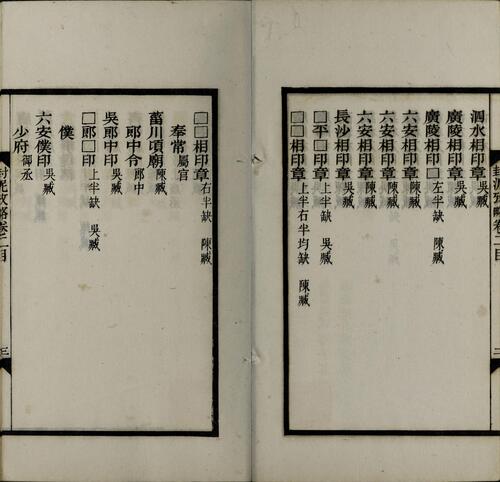 泗水相印章 吳臧
廣陵相印章 吳臧
廣陵相印□ 左半缺 陳臧
六安相印章 陳臧
六安相印章 陳臧
六安相印章 吳臧
長沙相印章 吳臧
□平□印章 上半缺 吳臧
□□相印章 上半右半均缺 陳臧
封泥攷略卷二目
二
□□相印章 右半缺 陳臧
奉常 屬官
菑川頃廟 陳臧
郎中令 郎中
吳郎中印 吳臧
□郎□印 上半缺 吳臧
僕
六安僕印 吳臧
少府 御丞
封泥攷略卷二目
三